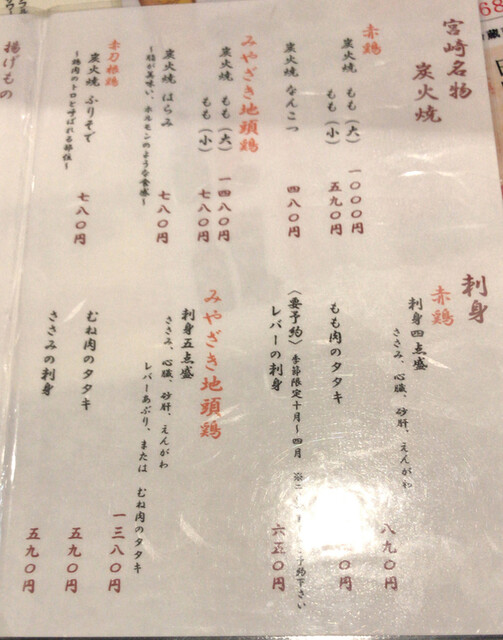 宮崎名物
炭火焼
赤鶏
炭火焼 もも(大) 一〇〇〇円
もも(小) 五九〇円
炭火焼 なんこつ 四八〇円
みやざき地頭鶏
炭火焼 もも(大) 一四八〇円
もも(小) 七八〇円
炭火焼 はらみ 七八〇円
~脂が美味い、ホルモンのような食感~
赤刀根鶏
炭火焼 ふりそで 七八〇円
~鶏肉のトロと呼ばれる部位~
揚げもの
刺身
赤鶏
刺身四点盛 八九〇円
ささみ、心臓、砂肝、えんがわ
もも肉のタタキ 〇円
(要予約)季節限定十月~四月 ※ 予約下さい
レバーの刺身 六五〇円
みやざき地頭鶏
刺身五点盛 一三八〇円
ささみ、心臓、砂肝、えんがわ
レバーあぶり、または むね肉のタタキ
むね肉のタタキ 五九〇円
ささみの刺身 五九〇円
68